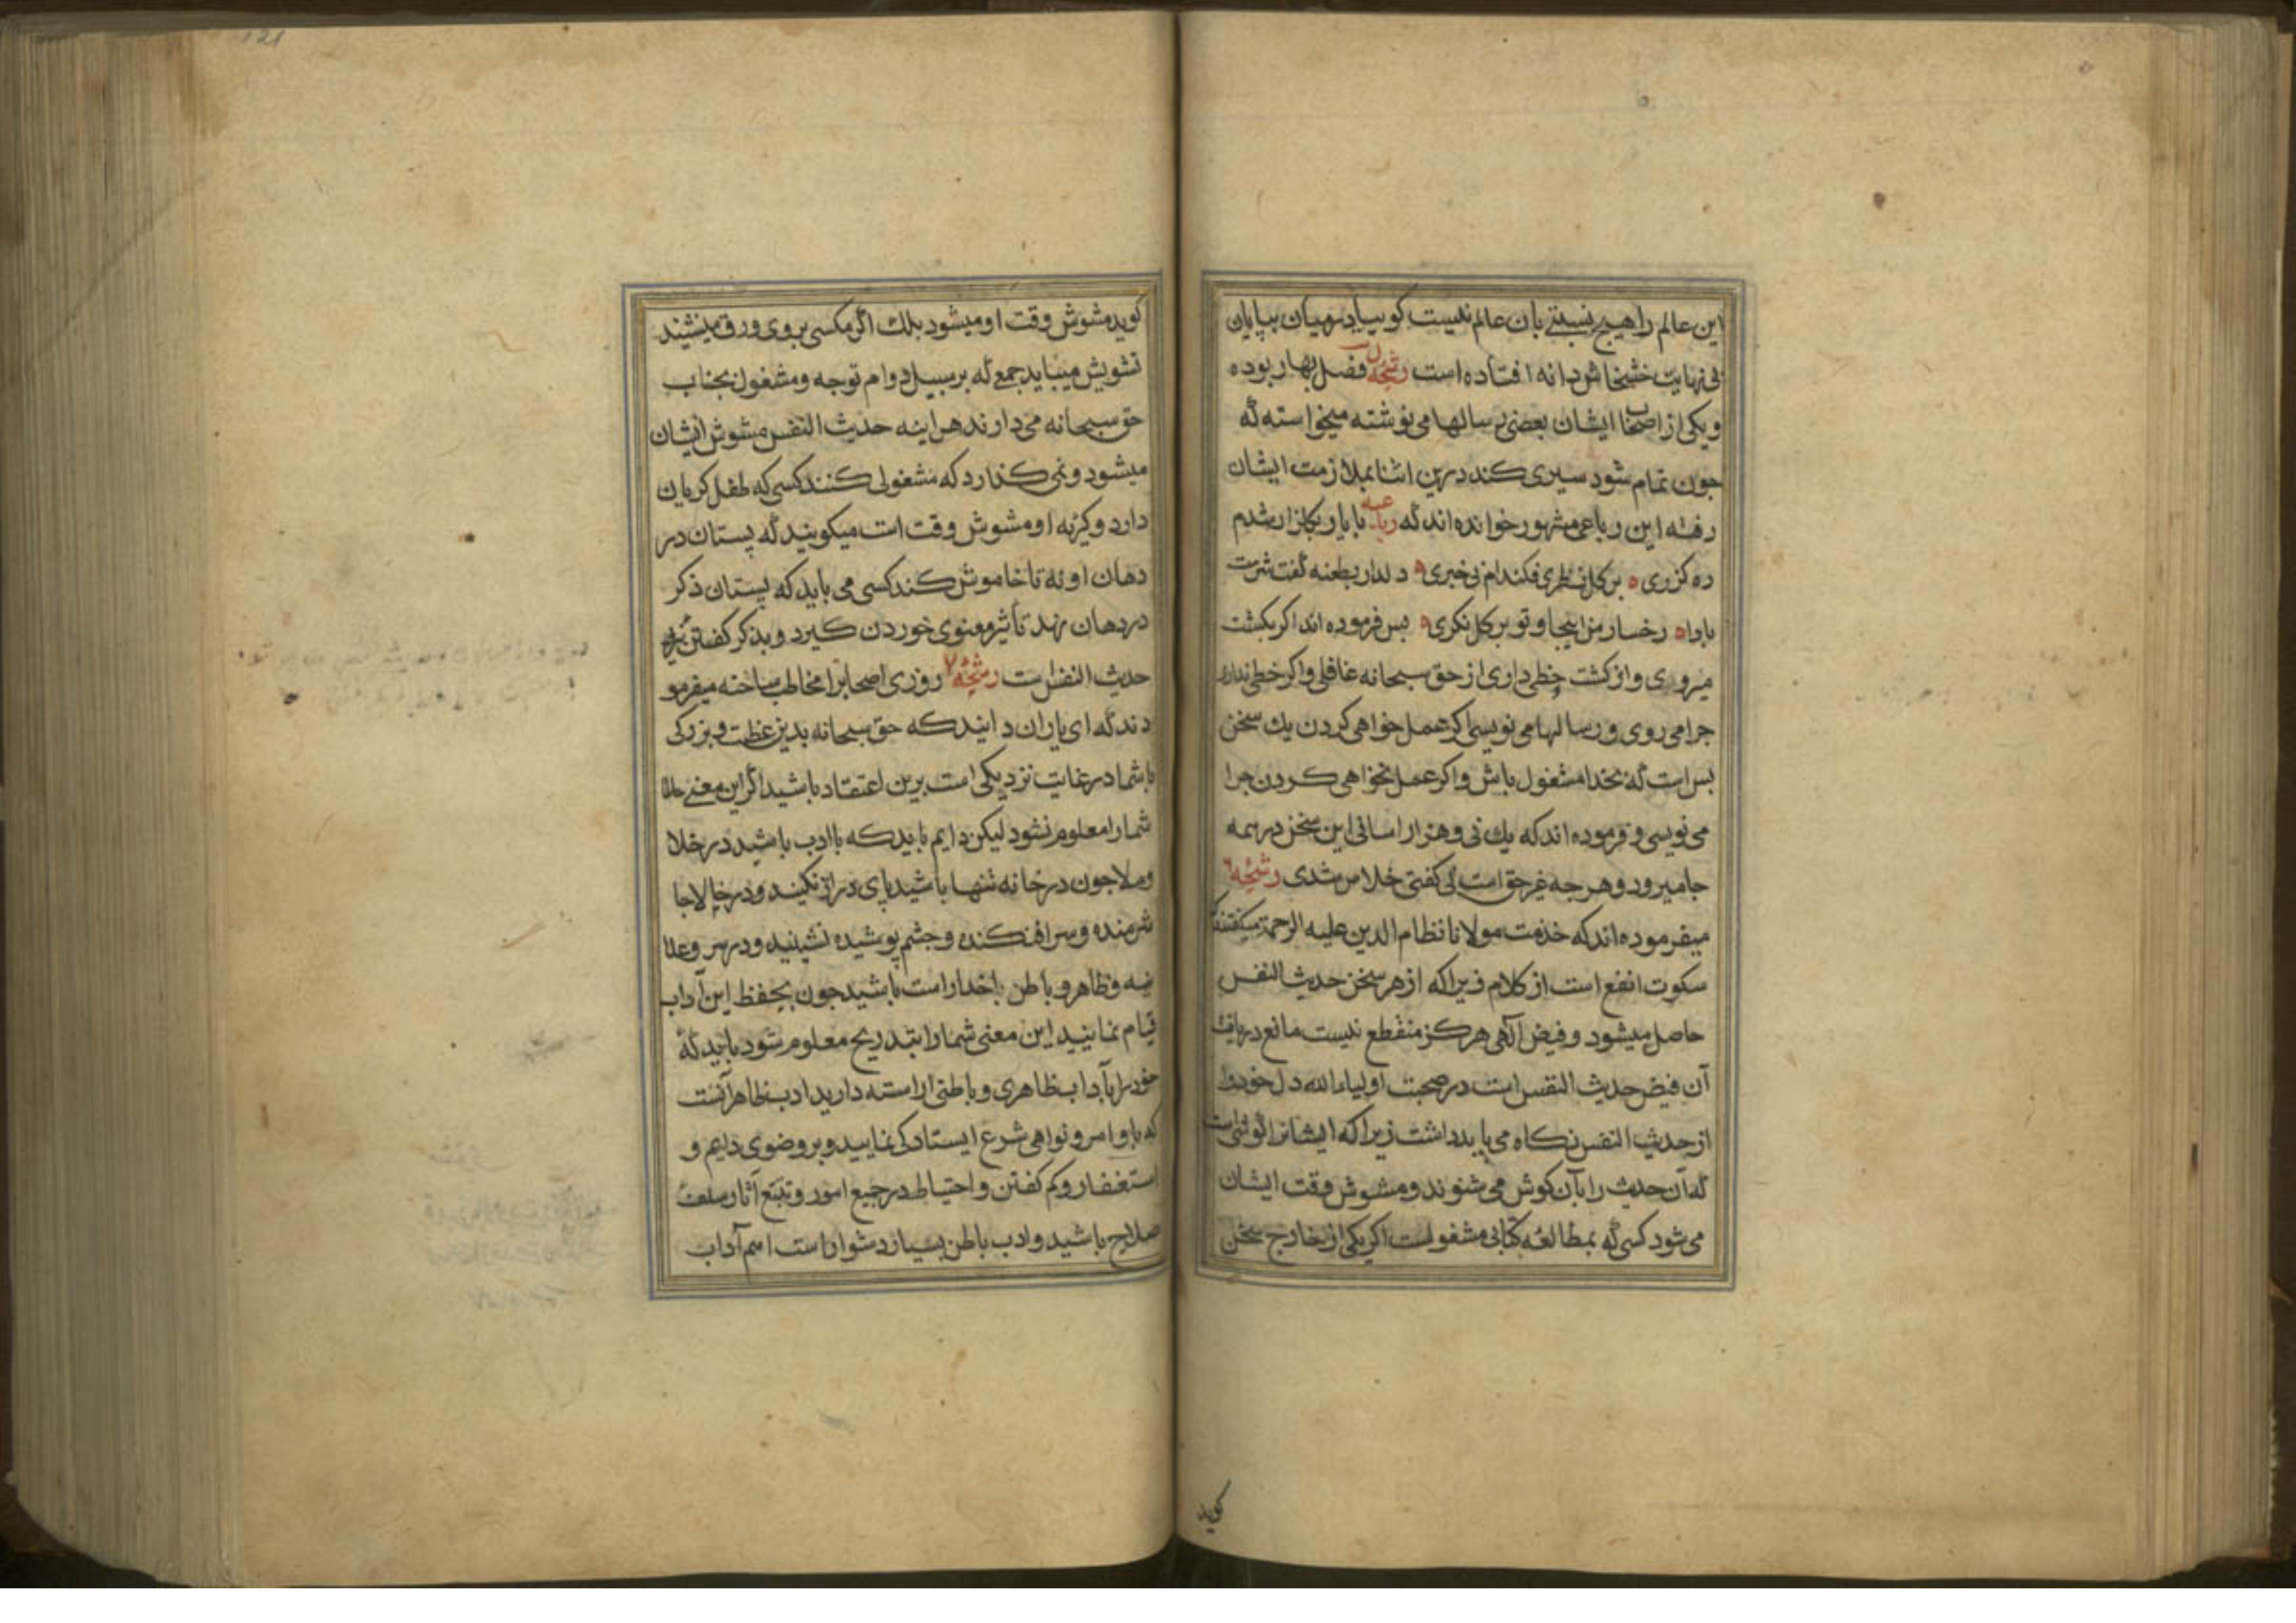 این عالم را هیچ نسبتے بان عالم نیست کوییا در میان بیابان
بی نهایت خشخاش دانه افتاده است رشحه فصل بهار بوده
و یکی از اصحاب ایشان بعضی رسالها می نوشته میخواسته که
جون تمام شود سیری کند درین اثنا بملازمت ایشان
رفته این رباعی مشهور خوانده اند که رباعیه با یار بکلزار شدم
ره کزری بر کل نظری فکندم از بی خبری دلدار بطعنه کفت شرمت
بادا رخسار من اینجا و تو بر کل نکری پس فرموده اند اکر بکشت
میروی و از کشت حظی داری از حق سبحانه غافلی و اکر حظی نداری
جرا می روی و رسالها می نویسی اکر عمل خواهی کردن یك سخن
بس است که بخدا مشغول باش و اکر عمل نخواهی کردن جرا
می نویسی و فرموده اند که یك نی و هزار اسانی این سخن در همه
جا میرود و هر جه غیر حق است نی کفتی خلاص شدی رشحه ٦
میفرموده اند که خدمت مولانا نظام الدین علیه الرحمة میکفتند که
سکوت انفع است از کلام زیرا که از هر سخن حدیث النفس
حاصل میشود و فیض آلهی هرکز منقطع نیست مانع دریافت
آن فیض حدیث النفس است در صحبت اولیاء الله دل خود را
از حدیث النفس نکاه می باید داشت زیرا که ایشانرا کوشی است
که آن حدیث را بآن کوش می شنوند و مشوش وقت ایشان
می شود کسی که بمطالعۀ کتابی مشغول است اکر یکی از خارج سخن
کوید
121
کوید مشوش وقت او میشود بلك اکر مکسی بر روی ورق می نشیند
تشویش میباید جمعی که بر سبیل دوام توجه و مشغول بجناب
حق سبحانه می دارند هراینه حدیث النفس مشوش ایشان
میشود و نمی کذارد که مشغولی کنند کسی که طفل کریان
دارد و کریه او مشوش وقت است میکویند که پستان در
دهان او نه تا خاموش کند کسی می باید که پستان ذکر
در دهان نهد تا شیر معنوی خوردن کیرد و بذکر کفتن
حدیث النفس است رشحه ٧ روزی اصحابرا مخاطب ساخته میفرمو
دند که ای یاران دانید که حق سبحانه بدین عظمت و بزرکی
با شما در غایت نزدیکی است برین اعتقاد باشید اکر این معنی حالا
شما را معلوم نشود لیکن دایم باید که با ادب باشید در خلا
و ملا جون در خانه تنها باشید پای دراز نکنید و در خلا جا
شرمنده و سر افکنده و جشم پوشیده نشینید و در سر و علا
نیه و ظاهر و باطن با خدا راست باشید جون بحفظ این آداب
قیام نمایید این معنی شما را بتدریج معلوم شود باید که
خود را بآداب ظاهری و باطنی اراسته دارید ادب ظاهر آنست
که باوامر و نواهی شرع ایستادکی نمایید و بر وضوی دایم و
استغفار و کم کفتن و احتیاط در جمیع امور و تتبع آثار سلف
صلاح باشید و ادب باطن بسیار دشوار است اهم آداب